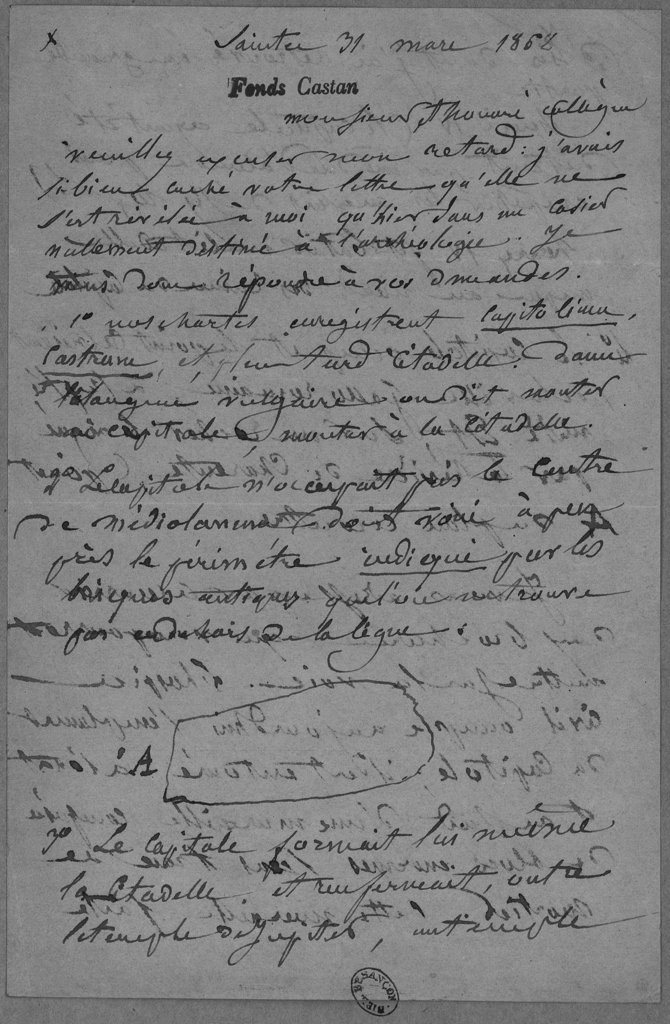 x Saintes 31 mars 1868
Fonds Castan
monsieur & honoré collègue
veuillez excuser mon retard : j'avais
si bien caché votre lettre qu'elle ne
s'est révélée à moi qu'hier dans un casier
nullement destiné à l'archéologie. Je
donc répondre à vos demandes.
1° nos chartes enregistrent capitolium,
castrum, et plus tard citadelle. Dans
langue vulgaire on dit monter
au capitole & monter à la citadelle.
2° Le capitole n'occupait pas le centre
de médiolanum dont voici à peu
près le périmètre indiqué par les
briques antiques que l'on retrouve
pas en dehors de la ligne :
à A
3° Le capitole formait lui même
la citadelle et renfermait, outre
le temple de Jupiter, un temple
BIB. BESANÇON